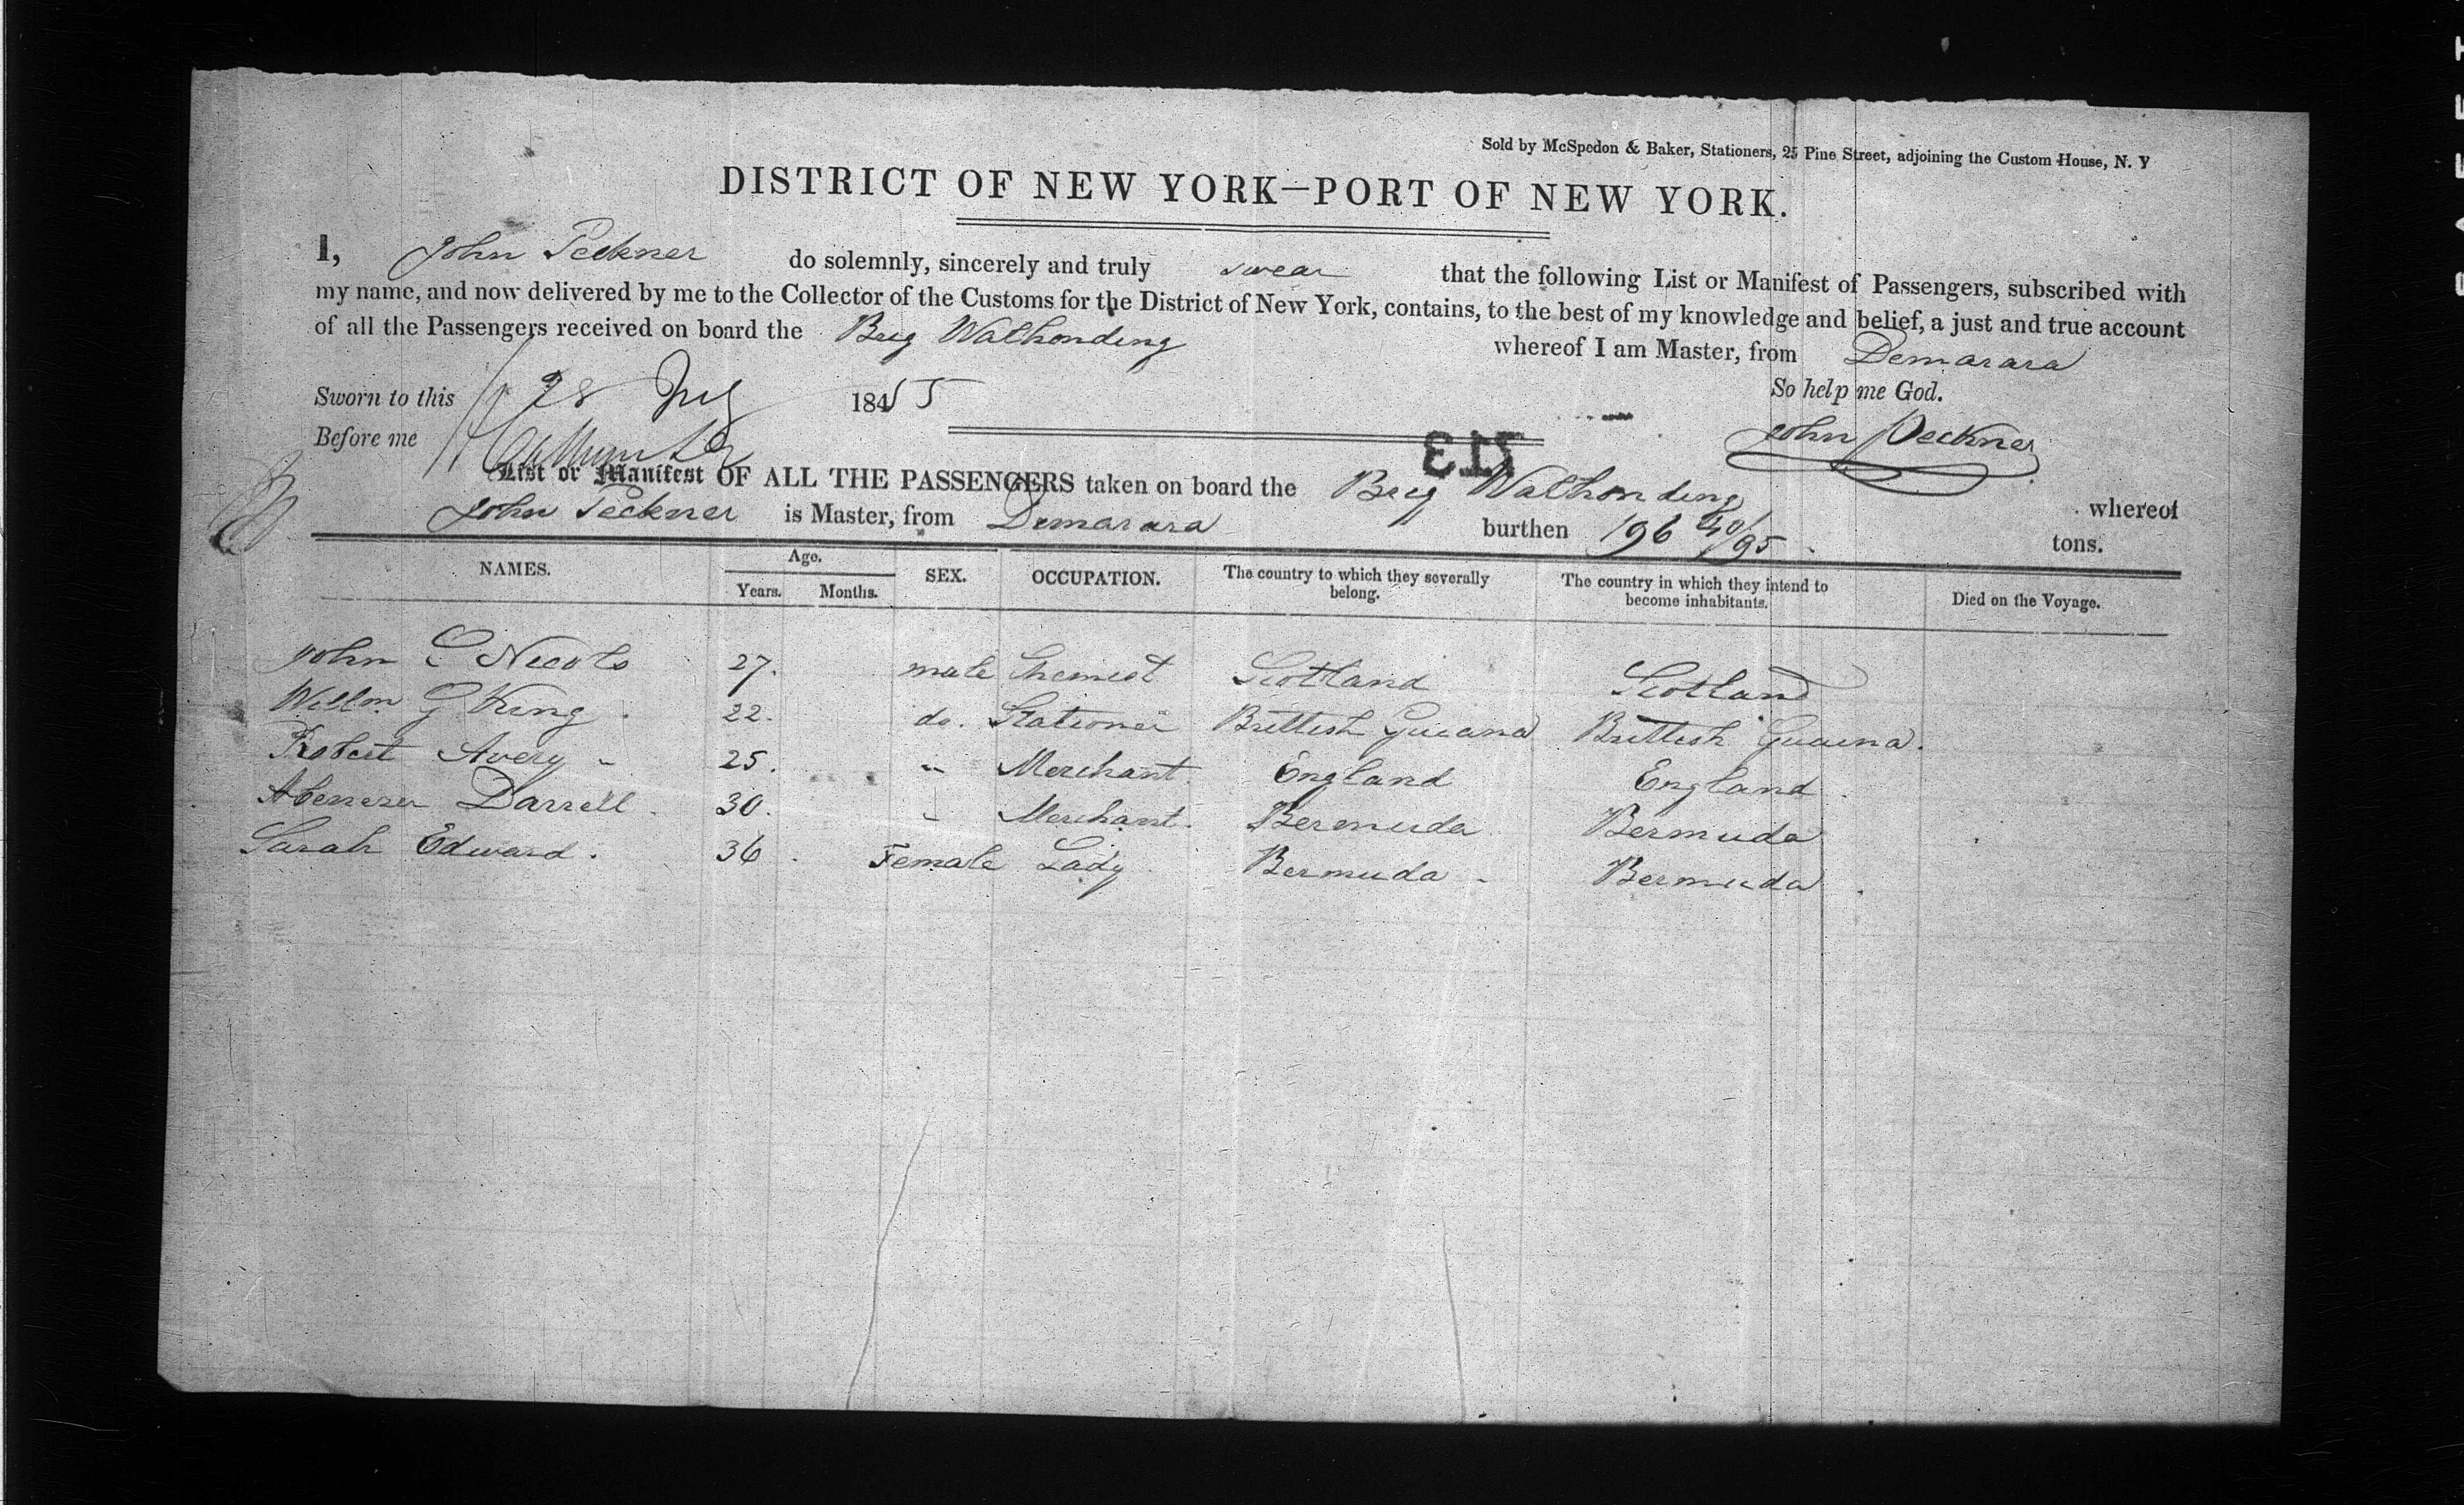 Sold by McSpedon & Baker, Stationers, 25 Pine Street, adjoining the Custom House, N. Y
DISTRICT OF NEW YORK—PORT OF NEW YORK.
I, John Peckner do solemnly, sincerely and truly swear that the following List or Manifest of Passengers, subscribed with
my name, and now delivered by me to the Collector of the Customs for the District of New York, contains, to the best of my knowledge and belief, a just and true account
of all the Passengers received on board the Brig Walhonding whereof I am Master, from Demarara
Sworn to this 28 July 1845 So help me God.
Before me John Peckner
313
List or Manifest OF ALL THE PASSENGERS taken on board the Brig Walhonding whereof
John Peckner is Master, from Demarara burthen 196 40/95 tons.
NAMES. Age. Years. Months. SEX. OCCUPATION. The country to which they severally belong. The country in which they intend to become inhabitants. Died on the Voyage.
John C Nicols 27. male Chemist Scotland Scotland
Willm G King. 22. do. Stationer Brittish Guiana Brittish Guiana.
Robert Avery 25. " Merchant. England England.
Ebenezer Darrell. 30. " Merchant. Bermuda Bermuda
Sarah Edward. 36. Female Lady Bermuda Bermuda.